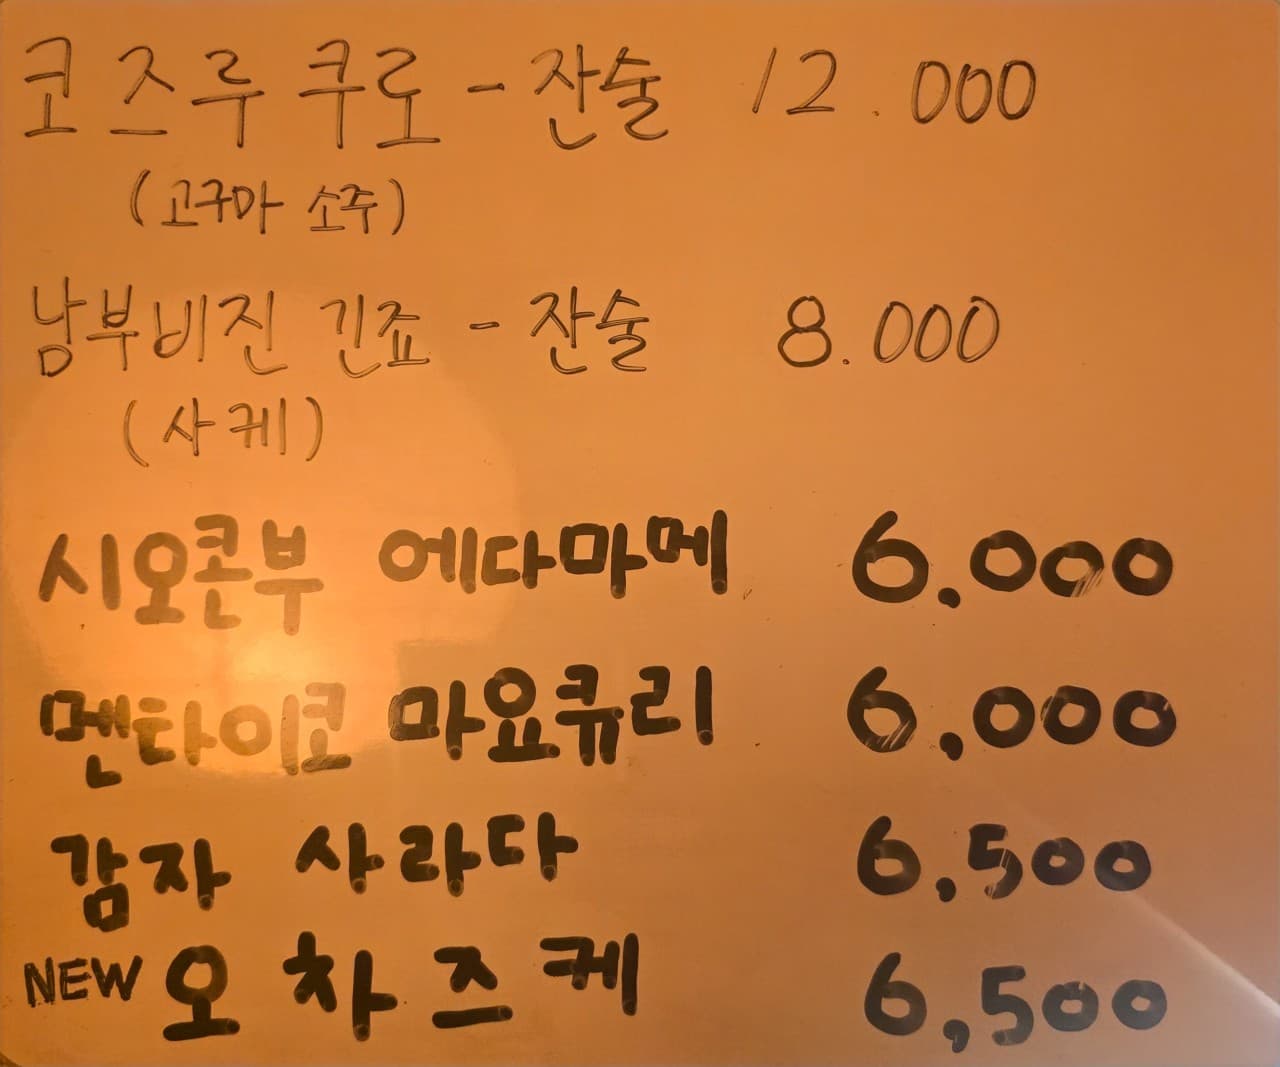 코즈루 쿠로 - 잔술 12.000
(고구마 소주)
남부비진 긴죠 - 잔술 8.000
(사케)
시오콘부 에다마메 6.000
멘타이코 마요큐리 6.000
감자 사라다 6,500
NEW 오차즈케 6,500